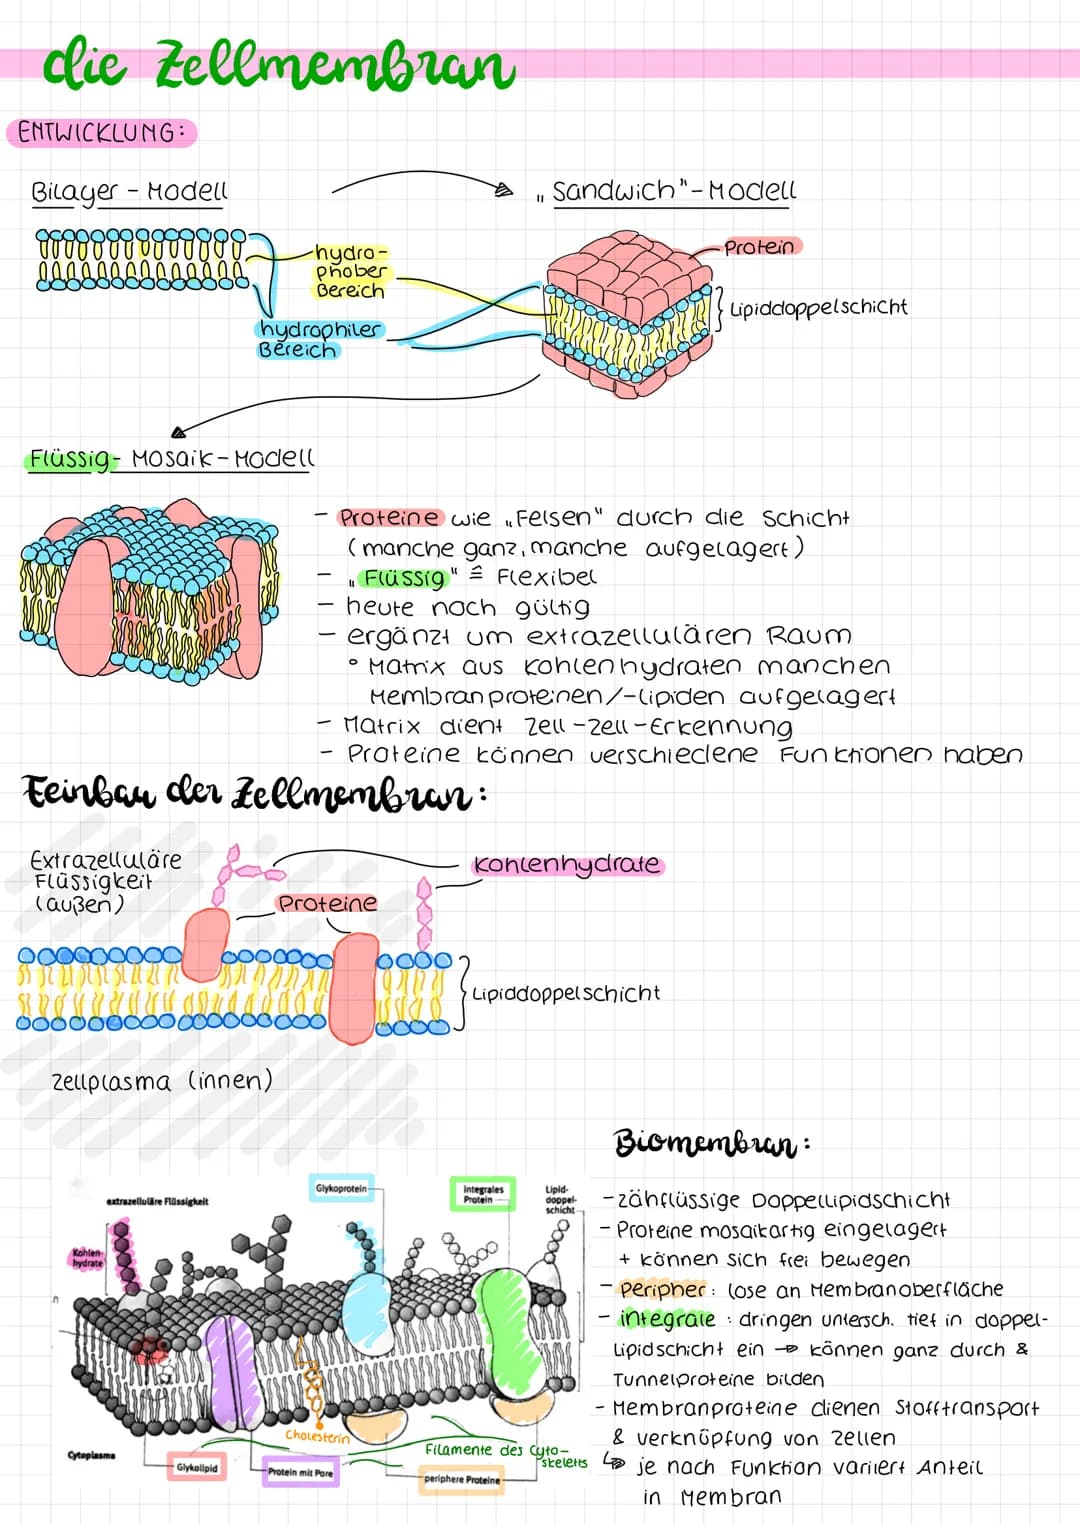 die Zellmembran
ENTWICKLUNG:
Bilayer - Modell
„Sandwich"-Modell
hydro-
phober
Bereich
hydrophiler
Bereich
Protein
Lipiddoppelschicht
Flüssig- Mosaik-Modell
- Proteine wie „Felsen" durch die Schicht
(manche ganz, manche aufgelagert)
- „Flüssig" ≙ Flexibel
- heute noch gültig
- ergänzt um extrazellulären Raum
° Matrix aus Kohlenhydraten manchen
Membranproteinen/-lipiden aufgelagert
- Matrix dient Zell-Zell-Erkennung
- Proteine können verschiedene Funktionen haben
Feinbau der Zellmembran:
Extrazelluläre
Flüssigkeit
(außen)
Kohlenhydrate
Proteine
Lipiddoppelschicht
Zellplasma (innen)
Biomembran:
- zähflüssige Doppellipidschicht
- Proteine mosaikartig eingelagert
+ können sich frei bewegen
- Peripher: lose an Membranoberfläche
- integrale: dringen untersch. tief in doppel-
lipidschicht ein → können ganz durch &
Tunnelproteine bilden
- Membranproteine dienen Stofftransport
& verknüpfung von Zellen
↳ je nach Funktion variiert Anteil
in Membran
extrazelluläre Flüssigkeit
Glykoprotein
integrales
Protein
Lipid-
doppel-
schicht
Kohlen-
hydrate
n
Cholesterin
Cytoplasma
Glykolipid
Protein mit Pore
Filamente des Cyto-
skeletts
periphere Proteine